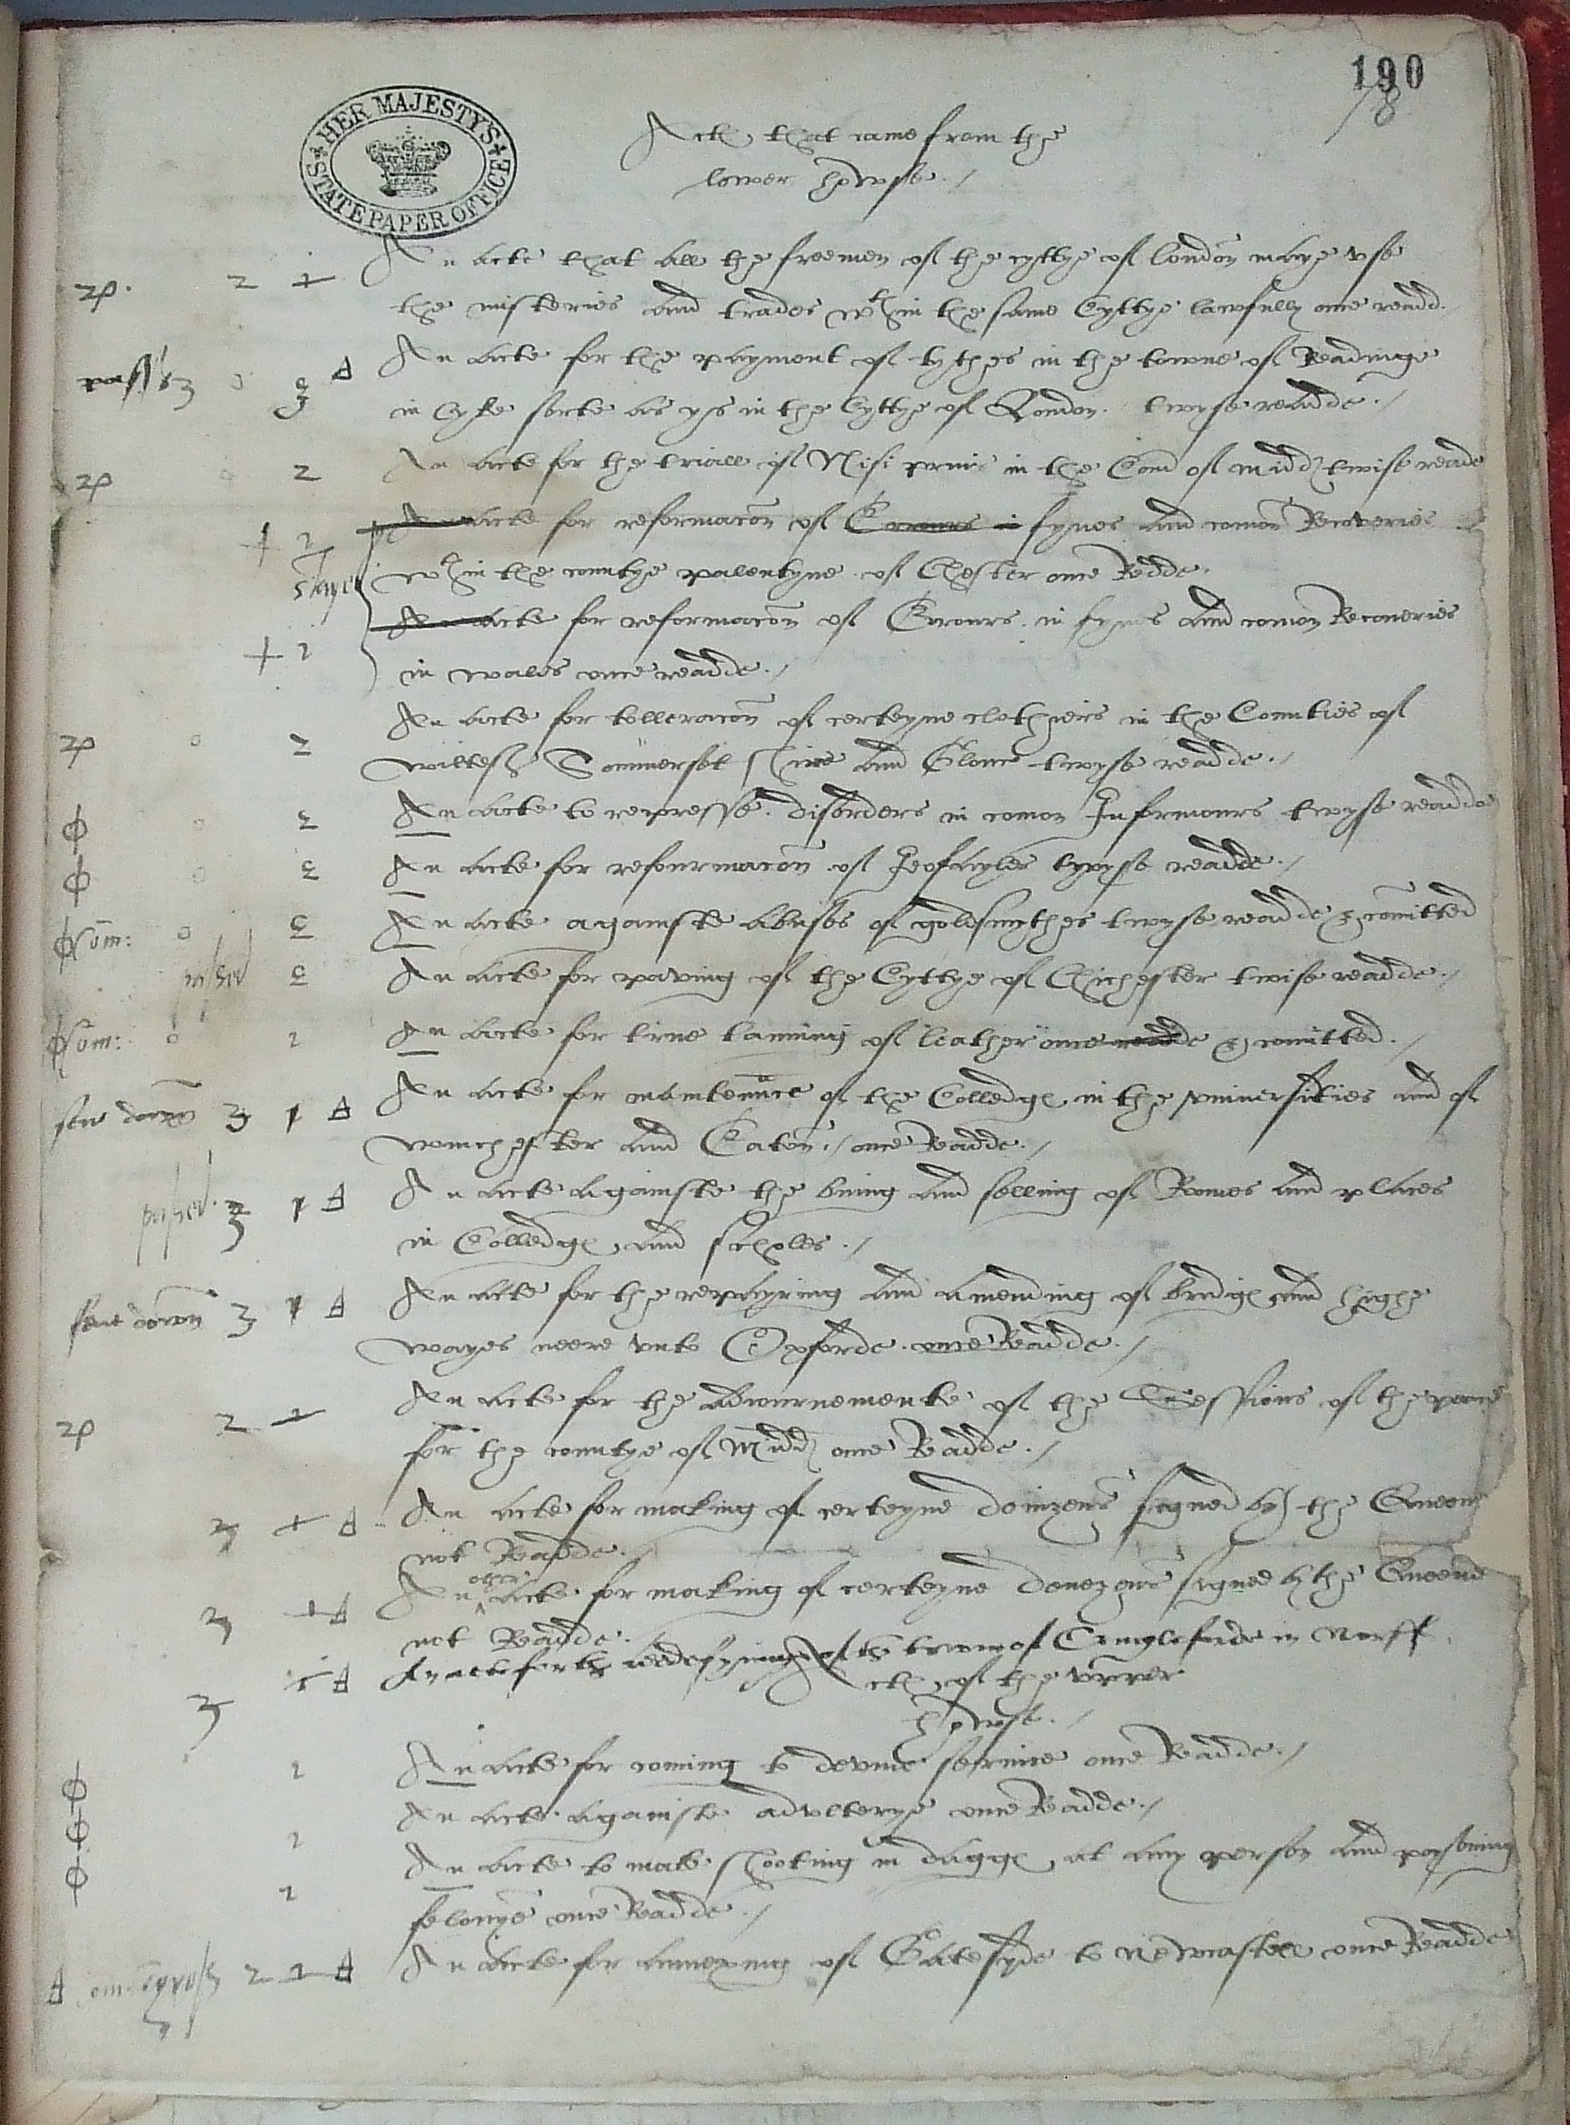 190
78
HER MAJESTY'S STATE PAPER OFFICE
Actes that came from the
lower howse./
An acte that all the freemen of the cyttye of london maye vse
2 1 the misteries and trades wthin the same Cyttye lawfully once readd.
An acte for the payment of tythes in the towne of Readinge
3 in lyke sorte as ys in the Cyttye of London. twyse readde./
2 An acte for the triall of Nisi prius in the Com of Midd twise reade
+ 2 An acte for reformacon of Errours in fynes and comon Recoveries
staye wthin the countye palentyne of Chester once Redde.
+ 2 An acte for reformacon of Errours in fynes and comon Recoueries
in wales once readde./
An acte for tolleracon of certeyne clothyeirs in the Counties of
o 2 wiltesh Sommerset shire and Glouc twyse readde./
ϕ o 2 An acte to represse disorders in comon Informours twyse readde
ϕ o 2 An acte for refourmacon of Jeofayles twyse readde./
ϕ Com: o 2 An acte agaynste abuses of goldsmythes twyse readde & comitted
passed 2 An acte for paving of the Cyttye of Chichester twise readde./
ϕ Com: o 2 An acte for true tanning of leather once readde & comitted./
An acte for maintennce of the Colledges in the vniuersities and of
sent down 3 1 winchester and Eaton./ once Readde./
passed 3 1 An acte againste the buing and selling of Romes and places
in Colledges and scholes./
sent down 3 1 An acte for the repayring and amending of bridges and highe
wayes neere vnto Oxforde once Readde./
An acte for the adiournemente of the Sessions of the peace
2 1 for the countye of Midd once Readde./
3 1 An acte for making of certeyne deinzens signed by the Queene
not Readde.
other
3 1 An acte for making of certeyne denezens signed by the Queene
not Readde./
3 1 An acte for the reedefyinge of the towne of Cringleforde in Norff.
Actes of the vpper
howse./
ϕ 2 An acte for coming to devine seruice once Readde./
ϕ 2 An acte againste advlterye once Readde./
ϕ 2 An acte to make shooting in dagges at any person and poysoning
felonye once Readde./
2 1 An acte for annexing of Gatesyde to Newcastell once Readde